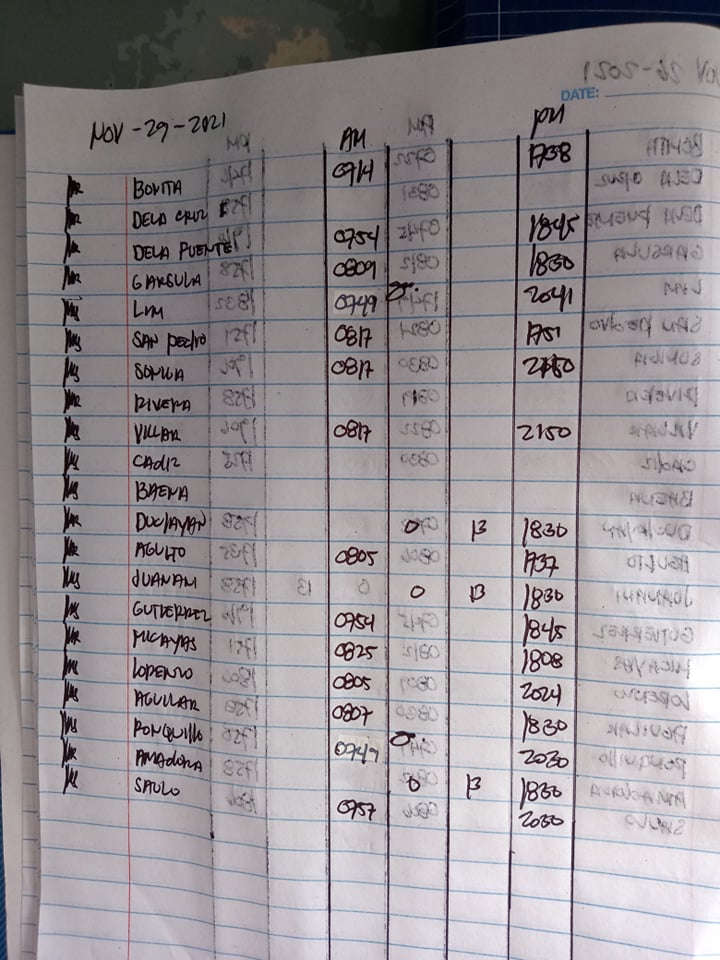 DATE:
NOV-29-2021
AM PM
Mr BONITA 0714 1738
Mr DELA CRUZ
Mr DELA PUENTE 0754 1845
Mr GARSULA 0809 1830
Ms LIM 0749 2041
Ms SAN PEDRO 0817 1751
Ms 0817
Mr RIVERA
Ms VILLAR 0817 2150
Ms CADIZ
Ms BAENA
Mr DUCLAYAN 0 B 1830
Mr AGULTO 0805 1737
Ms JUANANI 0 B 1830
Ms GUTIERREZ 0754 1845
Mr MICAYAS 0825 1808
Ms LORENZO 0805 2024
Mr AGUILAR 0807 1830
Ms RONQUILLO 0749 2030
Mr AMADORA 0 B 1830
Ms SAULO 0757 2030